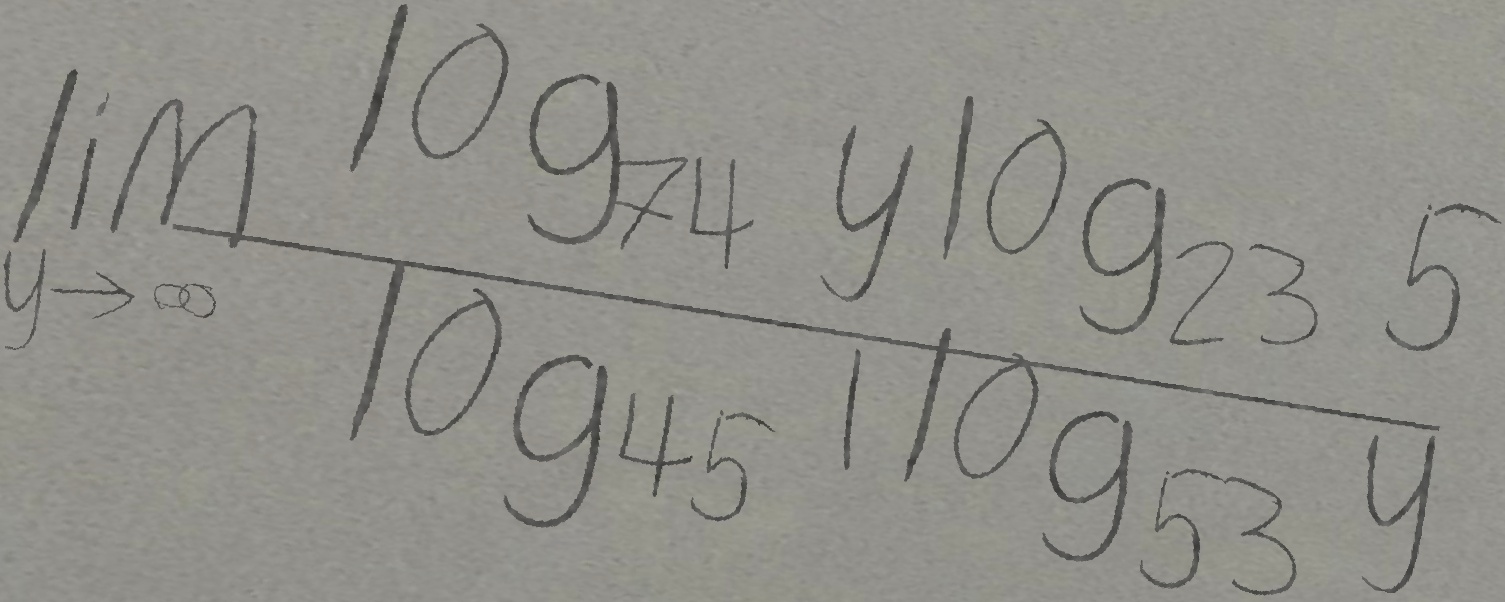 \lim_{y \to \infty} \frac{\log_{74} y \log_{23} 5}{\log_{45} 1 \log_{53} y}